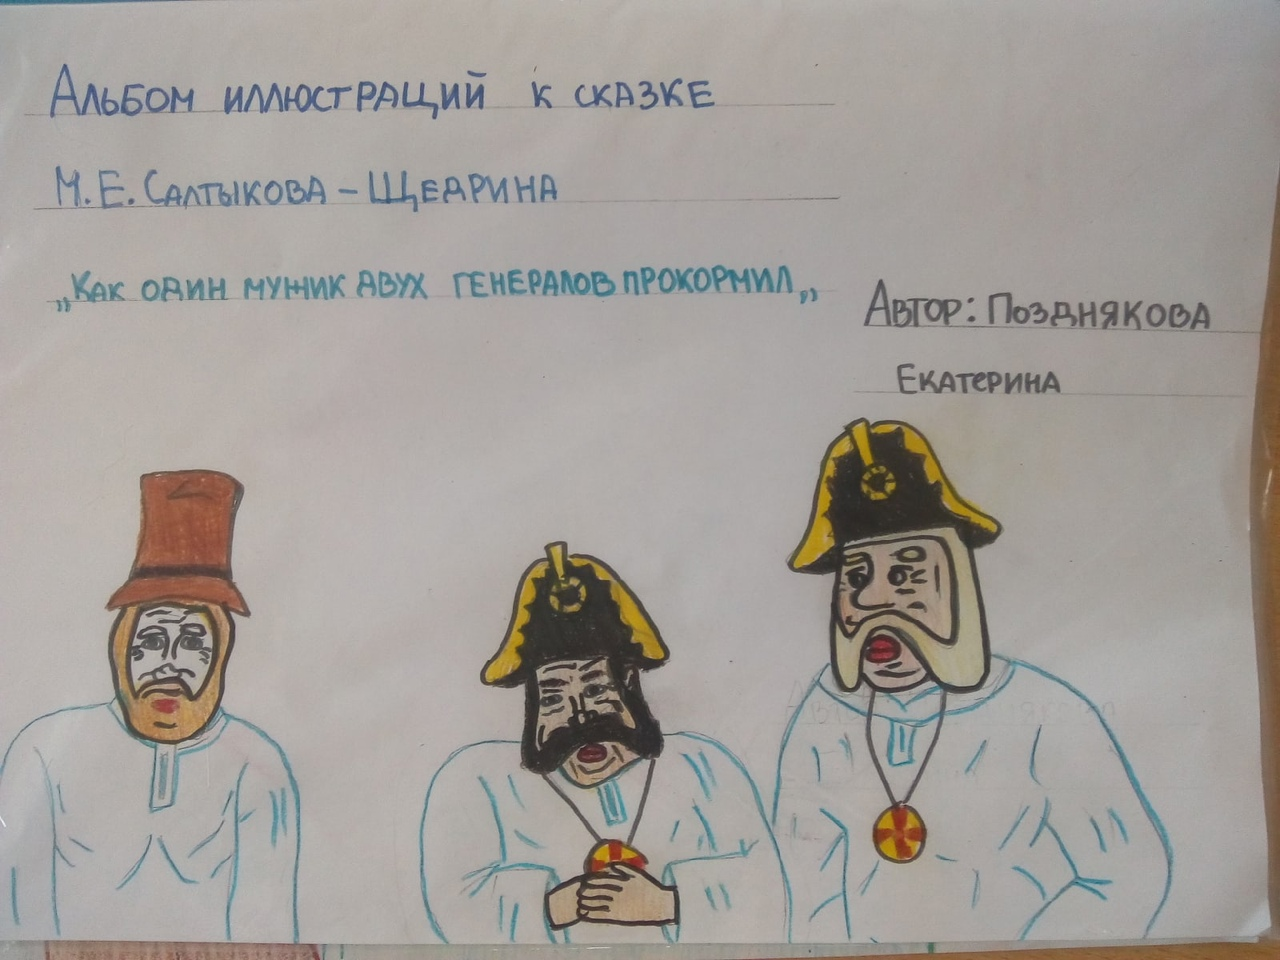 Альбом иллюстраций к сказке
М.Е. Салтыкова-Щедрина
„Как один мужик двух генералов прокормил„
Автор: Позднякова
Екатерина